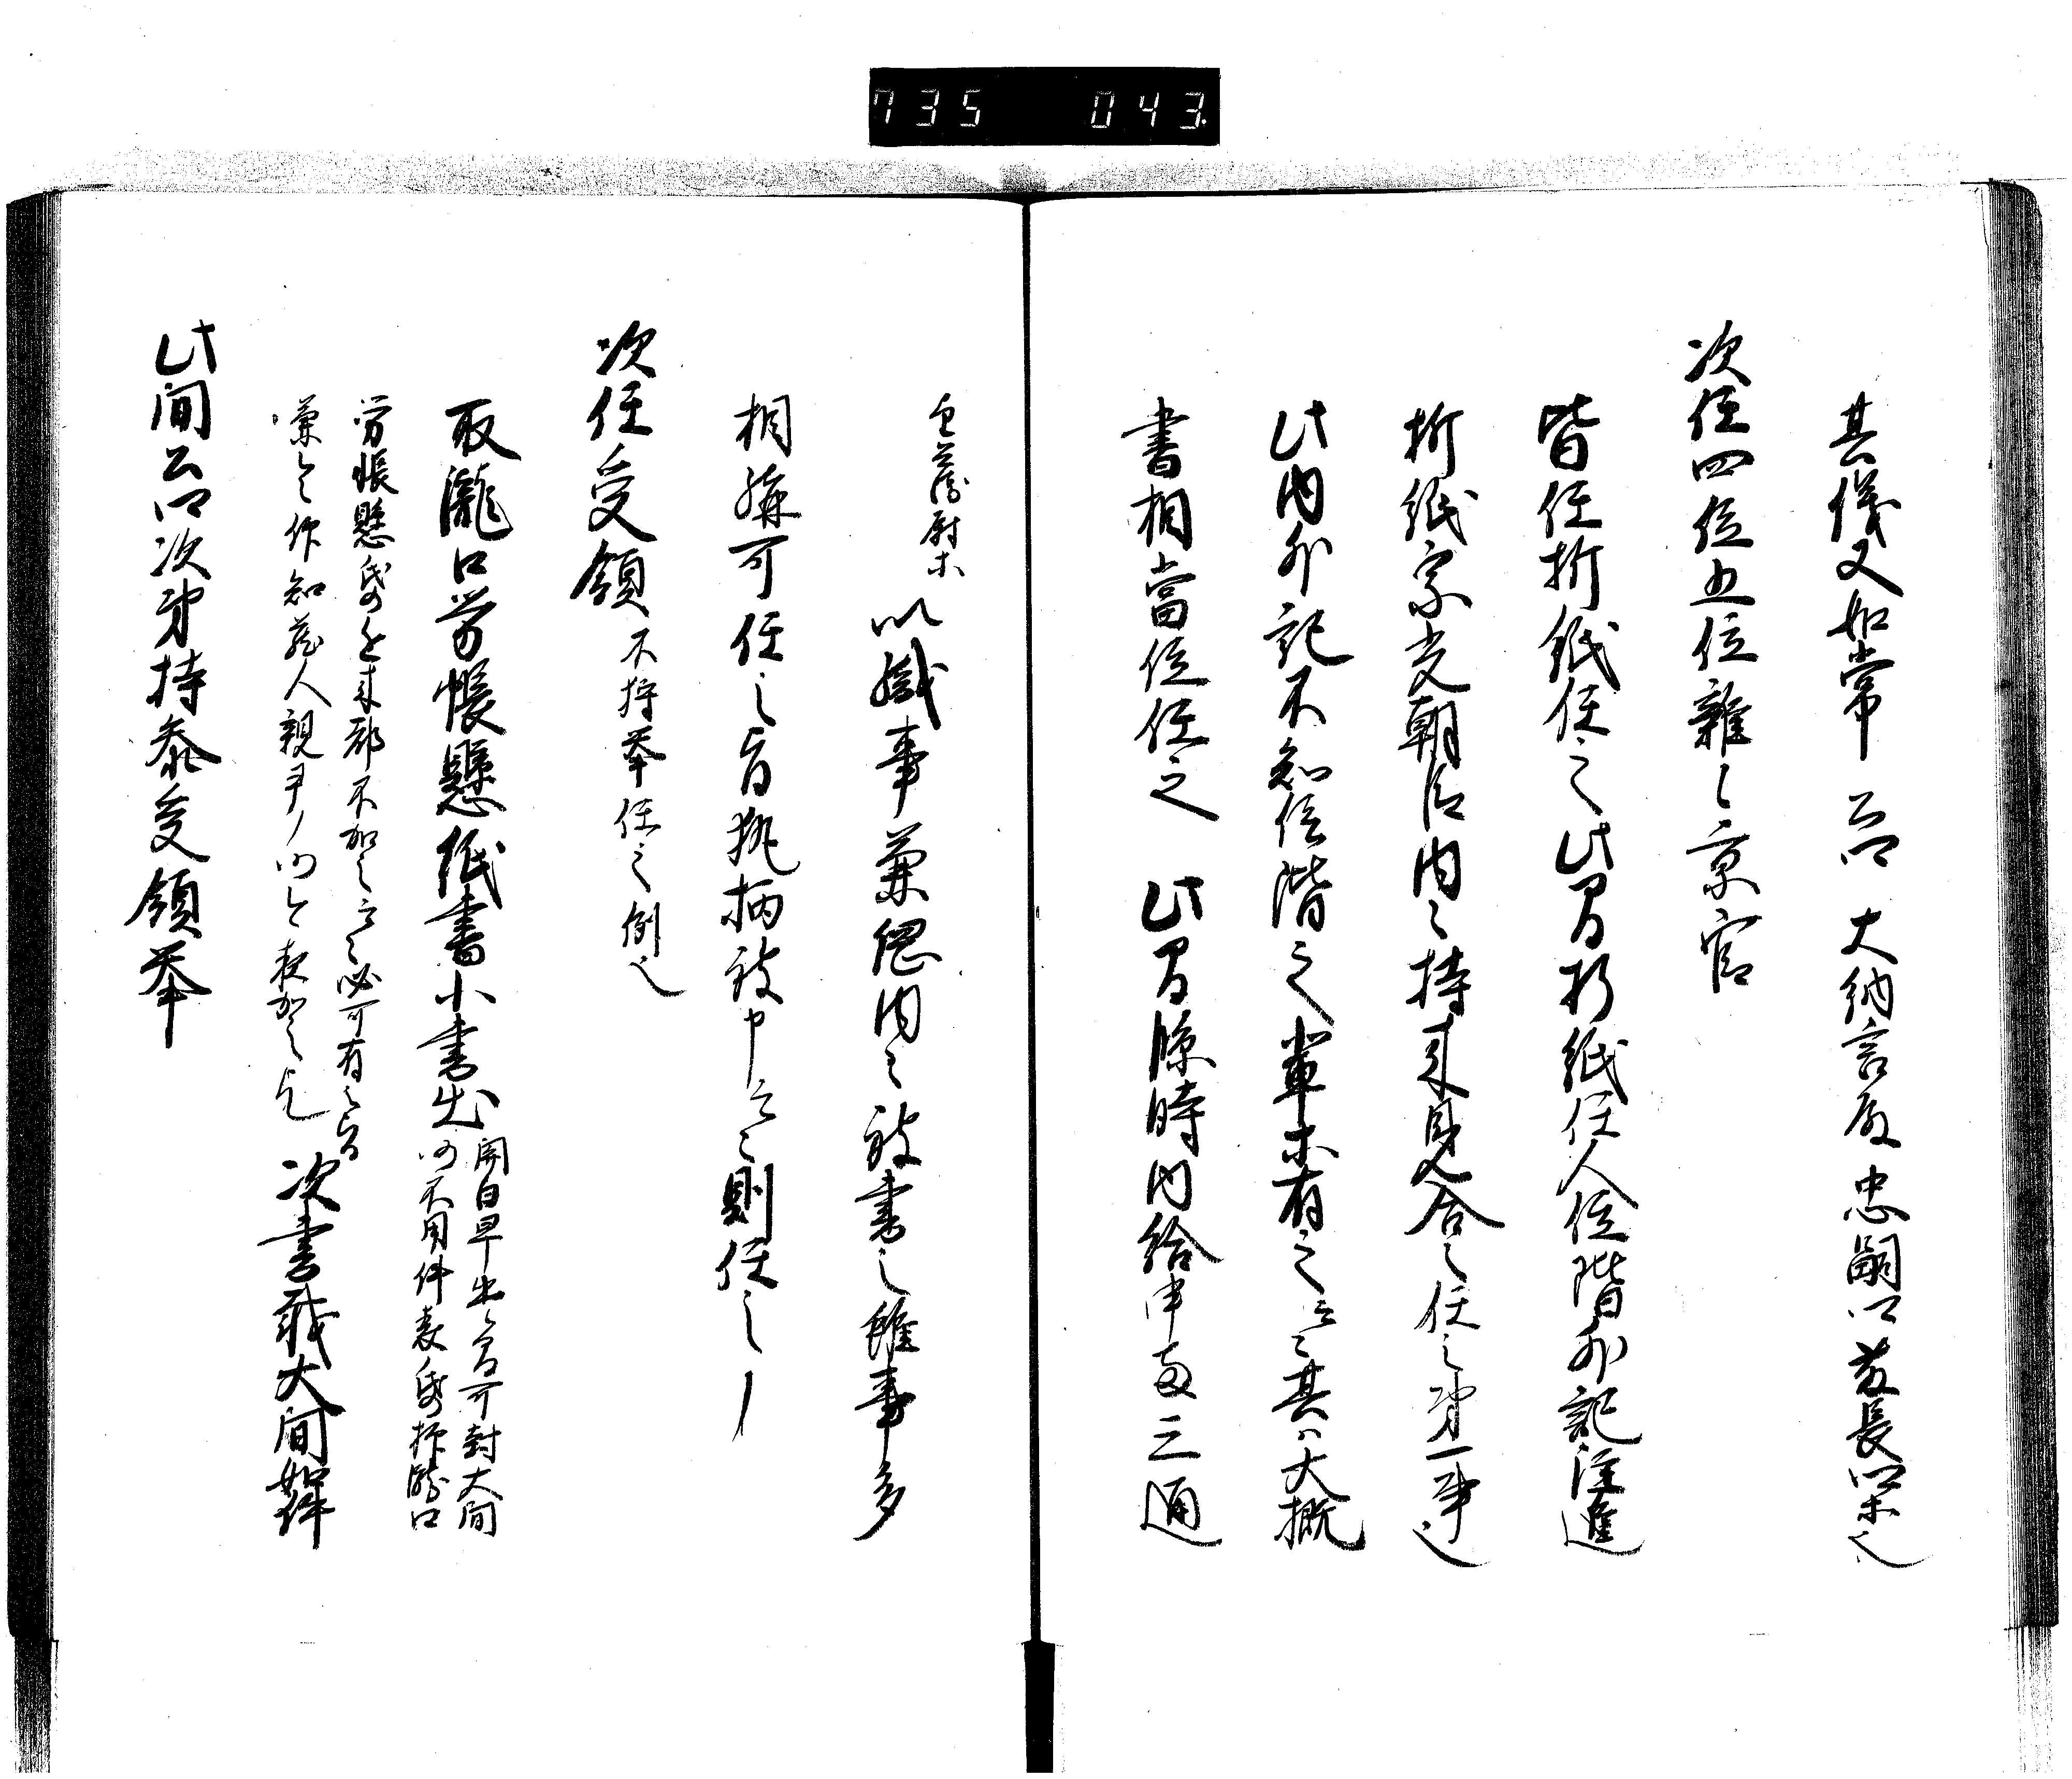 735 043
其儀又如常 召 大納言殿忠嗣卿 長 等也
次任四位五位雑々京官
皆任折紙任之此間折紙任人位階外記注進
折紙宗光朝臣内々持来見合之任之第一事也
此内外記不知位階之輩等有之云々其ハ大概
書相當位任之 此間臨時内給申文三通
尉等 以職事兼 内々被書之雖事多
相兼可任之旨執柄被申云々則任之
次任受領 不待挙任之例也
取瀧口労帳懸紙書小書出 関白早出之間可封大間
仍不用件表紙 瀧口
労帳懸紙 来 不加之云々必可有之旨
兼之 作知蔵人親 仍 加之了 次書載大間如件
此間召次第持参受領挙